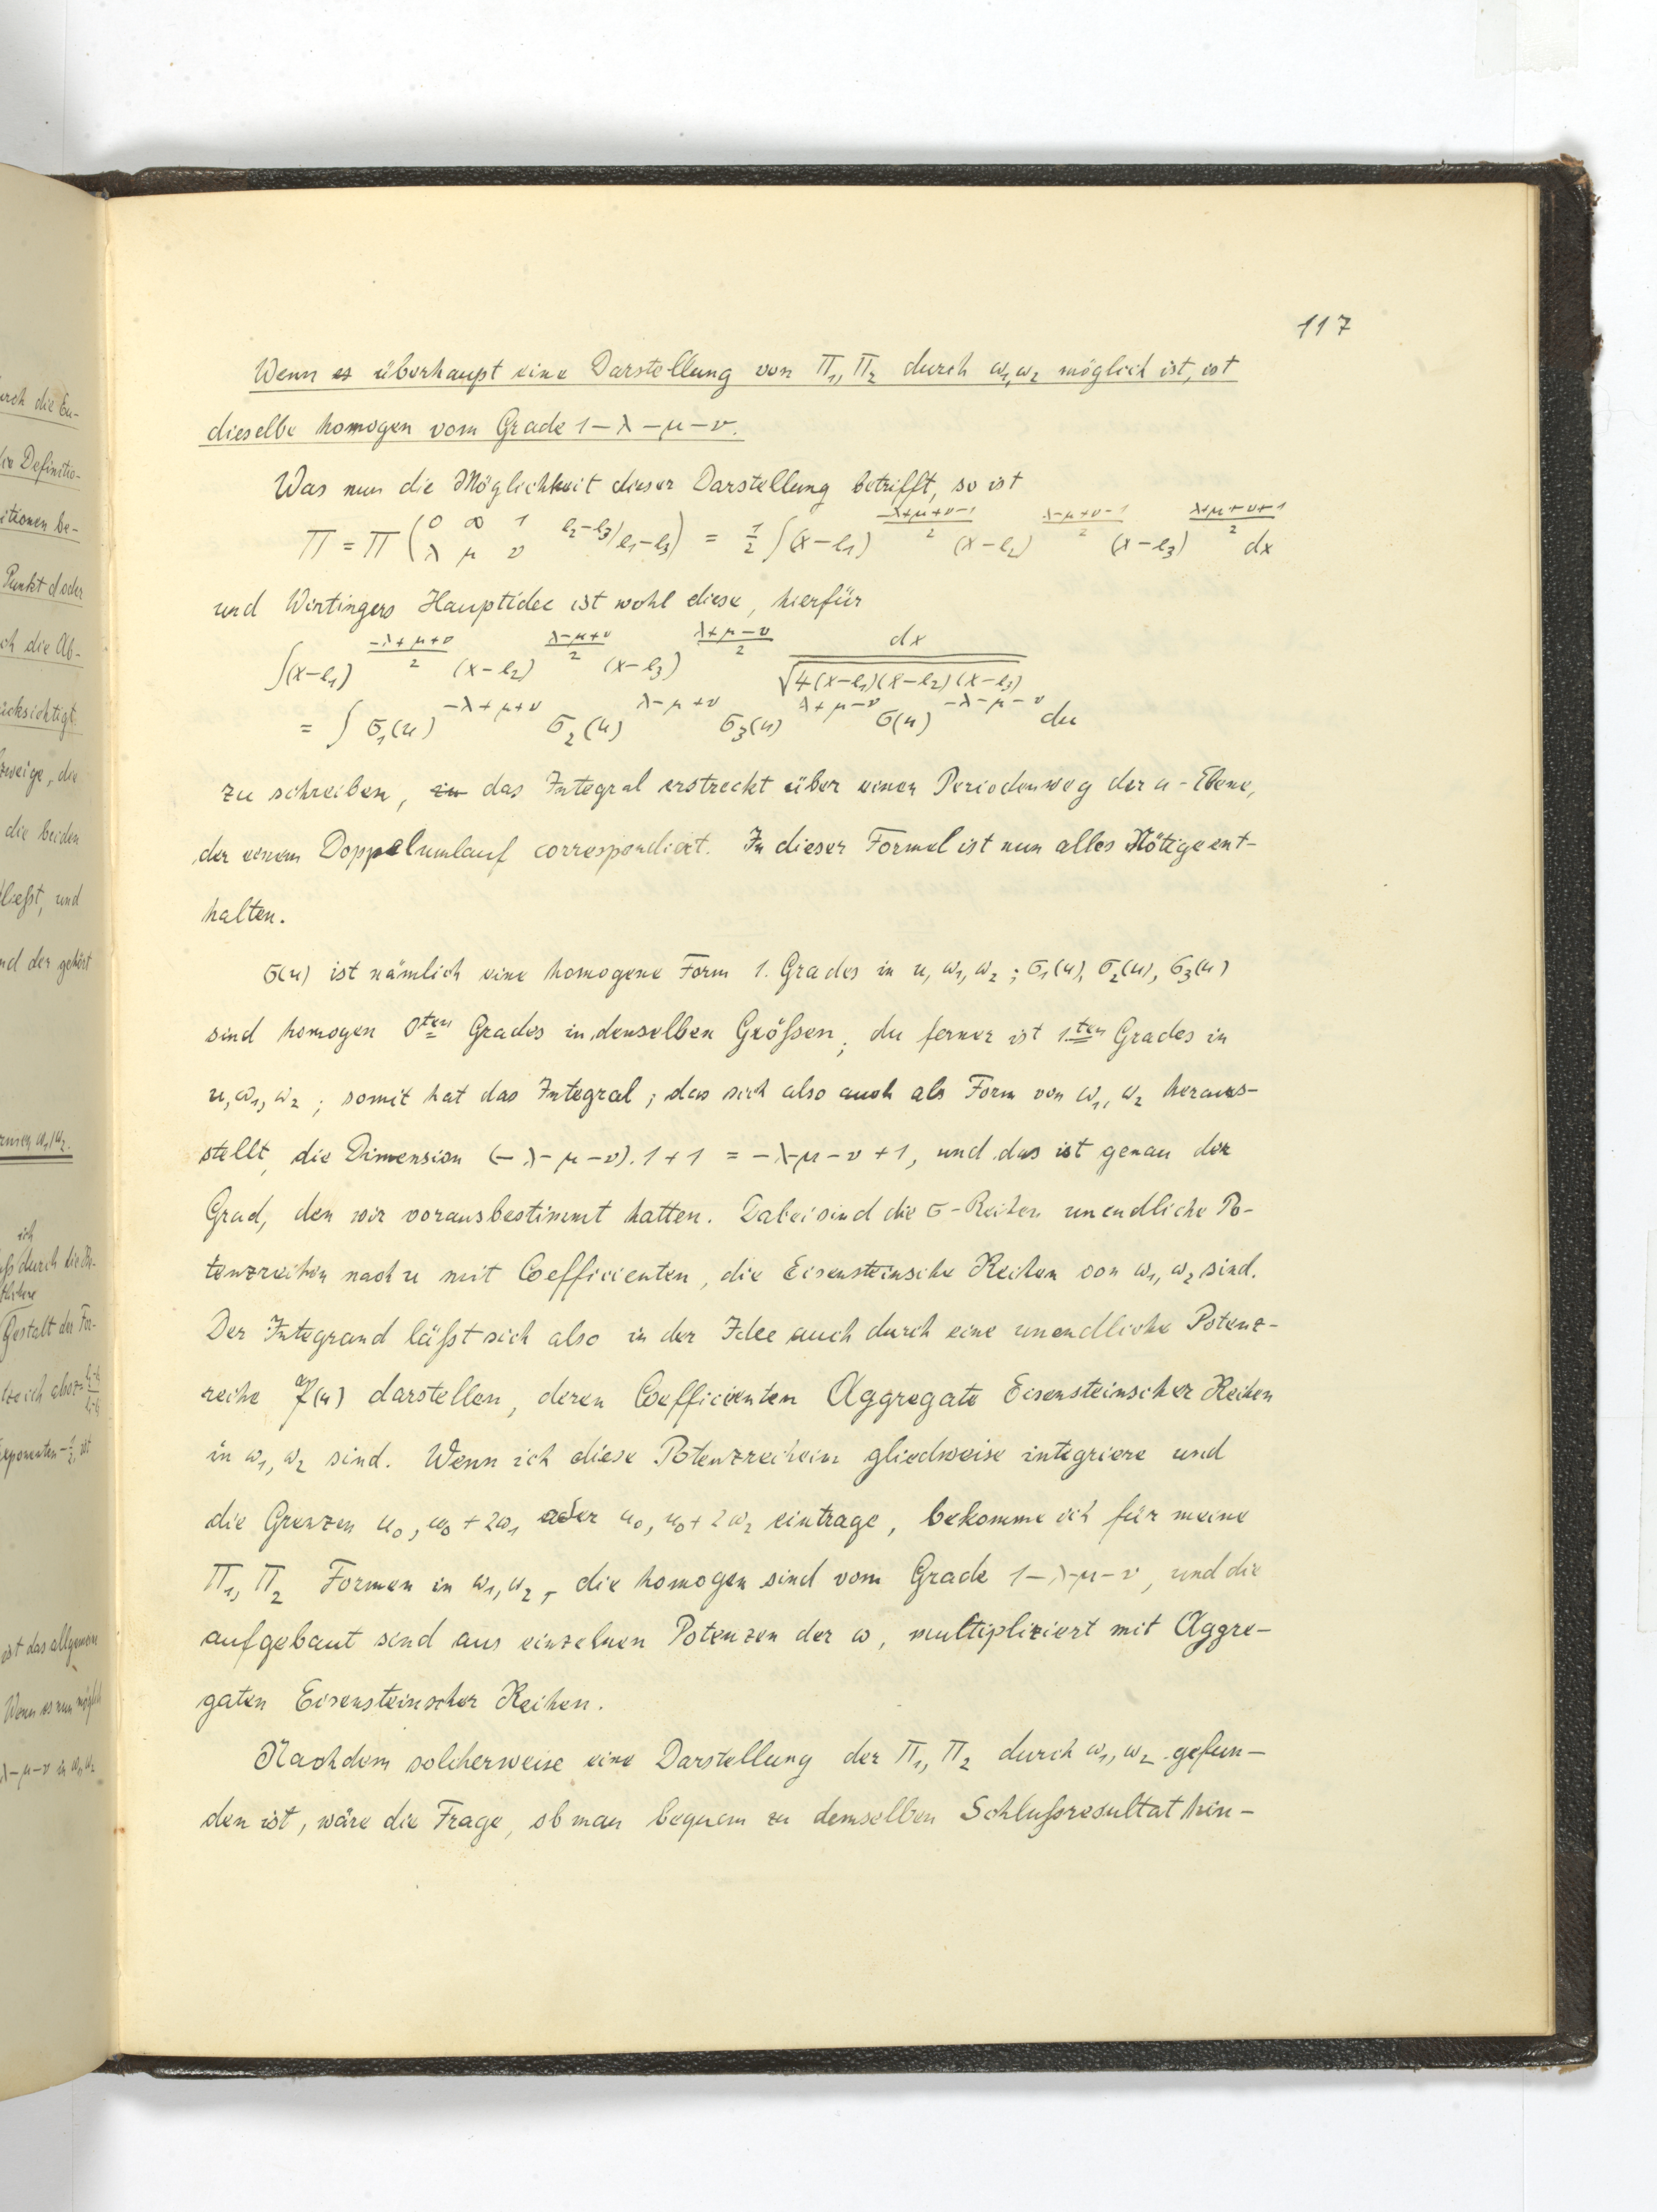 117
Wenn es überhaupt eine Darstellung von Π₁, Π₂ durch ω₁, ω₂ möglich ist, ist
dieselbe homogen vom Grade 1 − λ − μ − ν.
Was nun die Möglichkeit dieser Darstellung betrifft, so ist
Π = Π (0 ∞ 1 / λ μ ν  e₂−e₃/e₁−e₃) = 1/2 ∫(x−e₁)^{(−λ+μ+ν−1)/2} (x−e₂)^{(λ−μ+ν−1)/2} (x−e₃)^{(λ+μ−ν+1)/2} dx
und Wirtingers Hauptidee ist wohl diese, hierfür
∫(x−e₁)^{(−λ+μ+ν)/2} (x−e₂)^{(λ−μ+ν)/2} (x−e₃)^{(λ+μ−ν)/2} dx/√4(x−e₁)(x−e₂)(x−e₃)
= ∫ σ₁(u)^{−λ+μ+ν} σ₂(u)^{λ−μ+ν} σ₃(u)^{λ+μ−ν} σ(u)^{−λ−μ−ν} du
zu schreiben, das Integral erstreckt über einen Periodenweg der u-Ebene,
der einem Doppelumlauf correspondiert. In dieser Formel ist nun alles Nötige ent-
halten.
σ(u) ist nämlich eine homogene Form 1. Grades in u, ω₁, ω₂; σ₁(u), σ₂(u), σ₃(u)
sind homogen 0ten Grades in denselben Größen; du ferner ist 1ten Grades in
u, ω₁, ω₂; somit hat das Integral; das sich also auch als Form von ω₁, ω₂ heraus-
stellt, die Dimension (−λ−μ−ν).1+1 = −λ−μ−ν+1, und das ist genau der
Grad, den wir vorausbestimmt hatten. Dabei sind die σ-Reihen unendliche Po-
tenzreihen nach u mit Coefficienten, die Eisensteinsche Reihen von ω₁, ω₂ sind.
Der Integrand läßt sich also in der Idee auch durch eine unendliche Potenz-
reihe (u) darstellen, deren Coefficienten Aggregate Eisensteinscher Reihen
in ω₁, ω₂ sind. Wenn ich diese Potenzreihein gliedweise integriere und
die Grenzen u₀, u₀ + 2ω₁ oder u₀, u₀ + 2ω₂ eintrage, bekomme ich für meine
Π₁, Π₂ Formen in ω₁, ω₂, die homogen sind vom Grade 1−λ−μ−ν, und die
aufgebaut sind aus einzelnen Potenzen der ω, multipliziert mit Aggre-
gaten Eisensteinscher Reihen.
Nachdem solcherweise eine Darstellung der Π₁, Π₂ durch ω₁, ω₂ gefun-
den ist, wäre die Frage, ob man bequem zu demselben Schlußresultat hin-